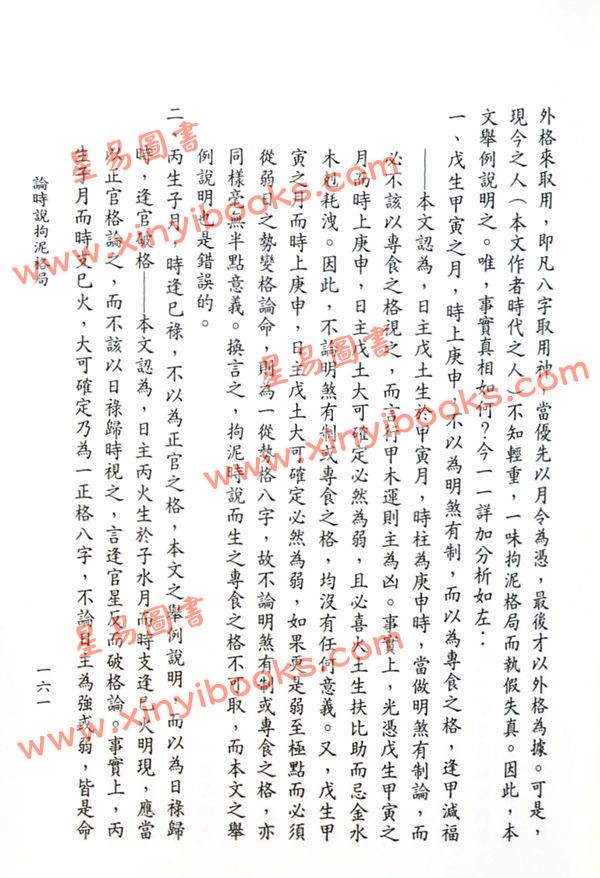 外格來取用，即凡八字取用神，當優先以月令為憑，最後才以外格為據。可是，
現今之人（本文作者時代之人）不知輕重，一味拘泥格局而執假失真。因此，本
文舉例說明之。唯，事實真相如何？今一一詳加分析如左：
一、戊生甲寅之月，時上庚申，不以為明煞有制，而以為專食之格，逢甲減福
——本文認為，日主戊土生於甲寅月，時柱為庚申時，當做明煞有制論，而
必不該以專食之格視之，而言行甲木運則主為凶。事實上，光憑戊生甲寅之
月而時上庚申，日主戊土大可確定必然為弱，且必喜火土生扶比助而忌金水
木剋耗洩。因此，不論明煞有制或專食之格，均沒有任何意義。又，戊生甲
寅之月而時上庚申，日主戊土大可確定必然為弱，如果更是弱至極點而必須
從弱日之勢變格論命，則為一從勢格八字，故不論明煞有制或專食之格，亦
同樣毫無半點意義。換言之，拘泥時說而生之專食之格不可取，而本文之舉
例說明也是錯誤的。
二、丙生子月，時逢巳祿，不以為正官之格，本文之舉例說明，而以為日祿歸
時，逢官破格——本文認為，日主丙火生於子水月而時支逢巳火明現，應當
以正官格論之，而不該以日祿歸時視之，言逢官星反而破格論。事實上，丙
生子月而時支巳火，大可確定乃為一正格八字，不論日主為強或弱，皆是命
論時說拘泥格局
一六一
星易圖書
www.xinyibooks.com
星易圖書
www.xinyibooks.com
星易圖書
www.xinyibooks.com
星易圖書
www.xinyibooks.com